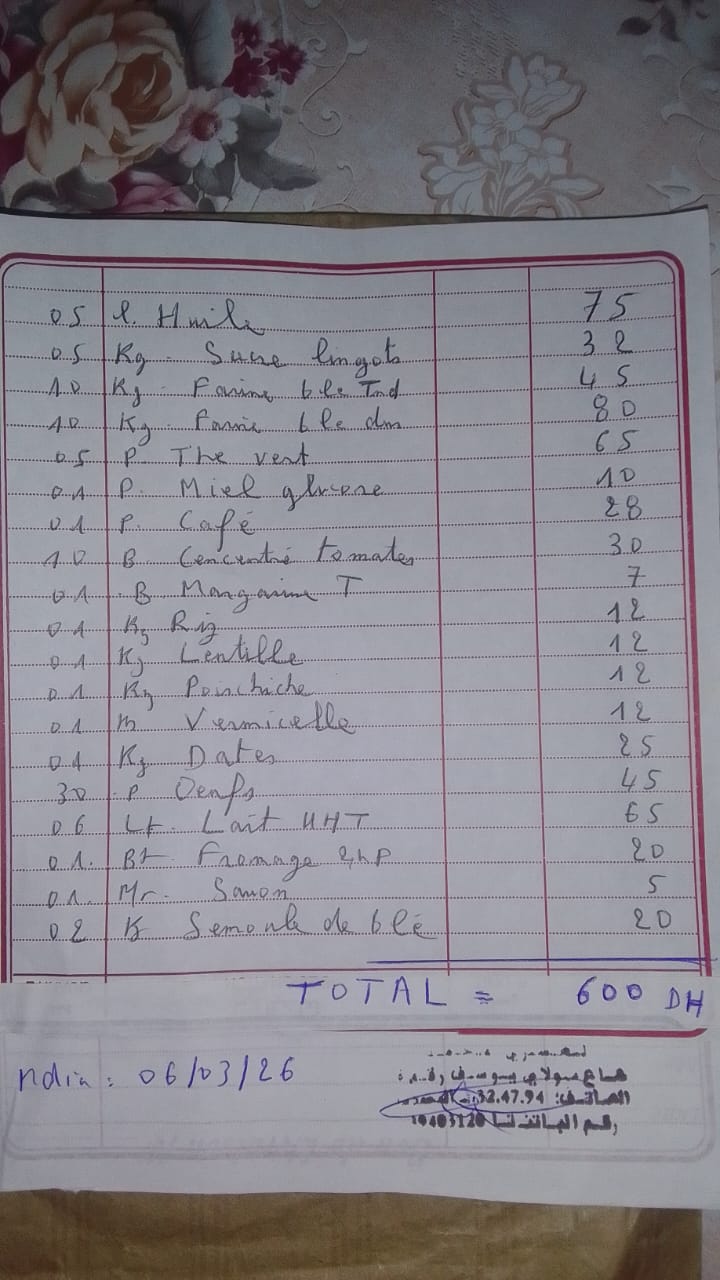 05 l. Huile 75
05 Kg. Sucre lingots 32
10 Kg. Farine ble Tnd 45
10 Kg. Farine ble dm 80
05 P. The vert 65
01 P. Miel glucose 10
01 P. Café 28
10 B Concentré tomates 30
01 B Margarine T 7
01 Kg Riz 12
01 Kg Lentille 12
01 Kg Poischiche 12
01 Vermicelle 12
01 Kg Dates 25
30 P Oeufs 45
06 Lt. Lait UHT 65
01. Bt. Fromage 24P 20
01. Mr. Savon 5
02 K Semoule de blé 20
TOTAL = 600 DH
ndia : 06/03/26
شارع مولاي يوسف رقم
الهاتف: 32.47.94